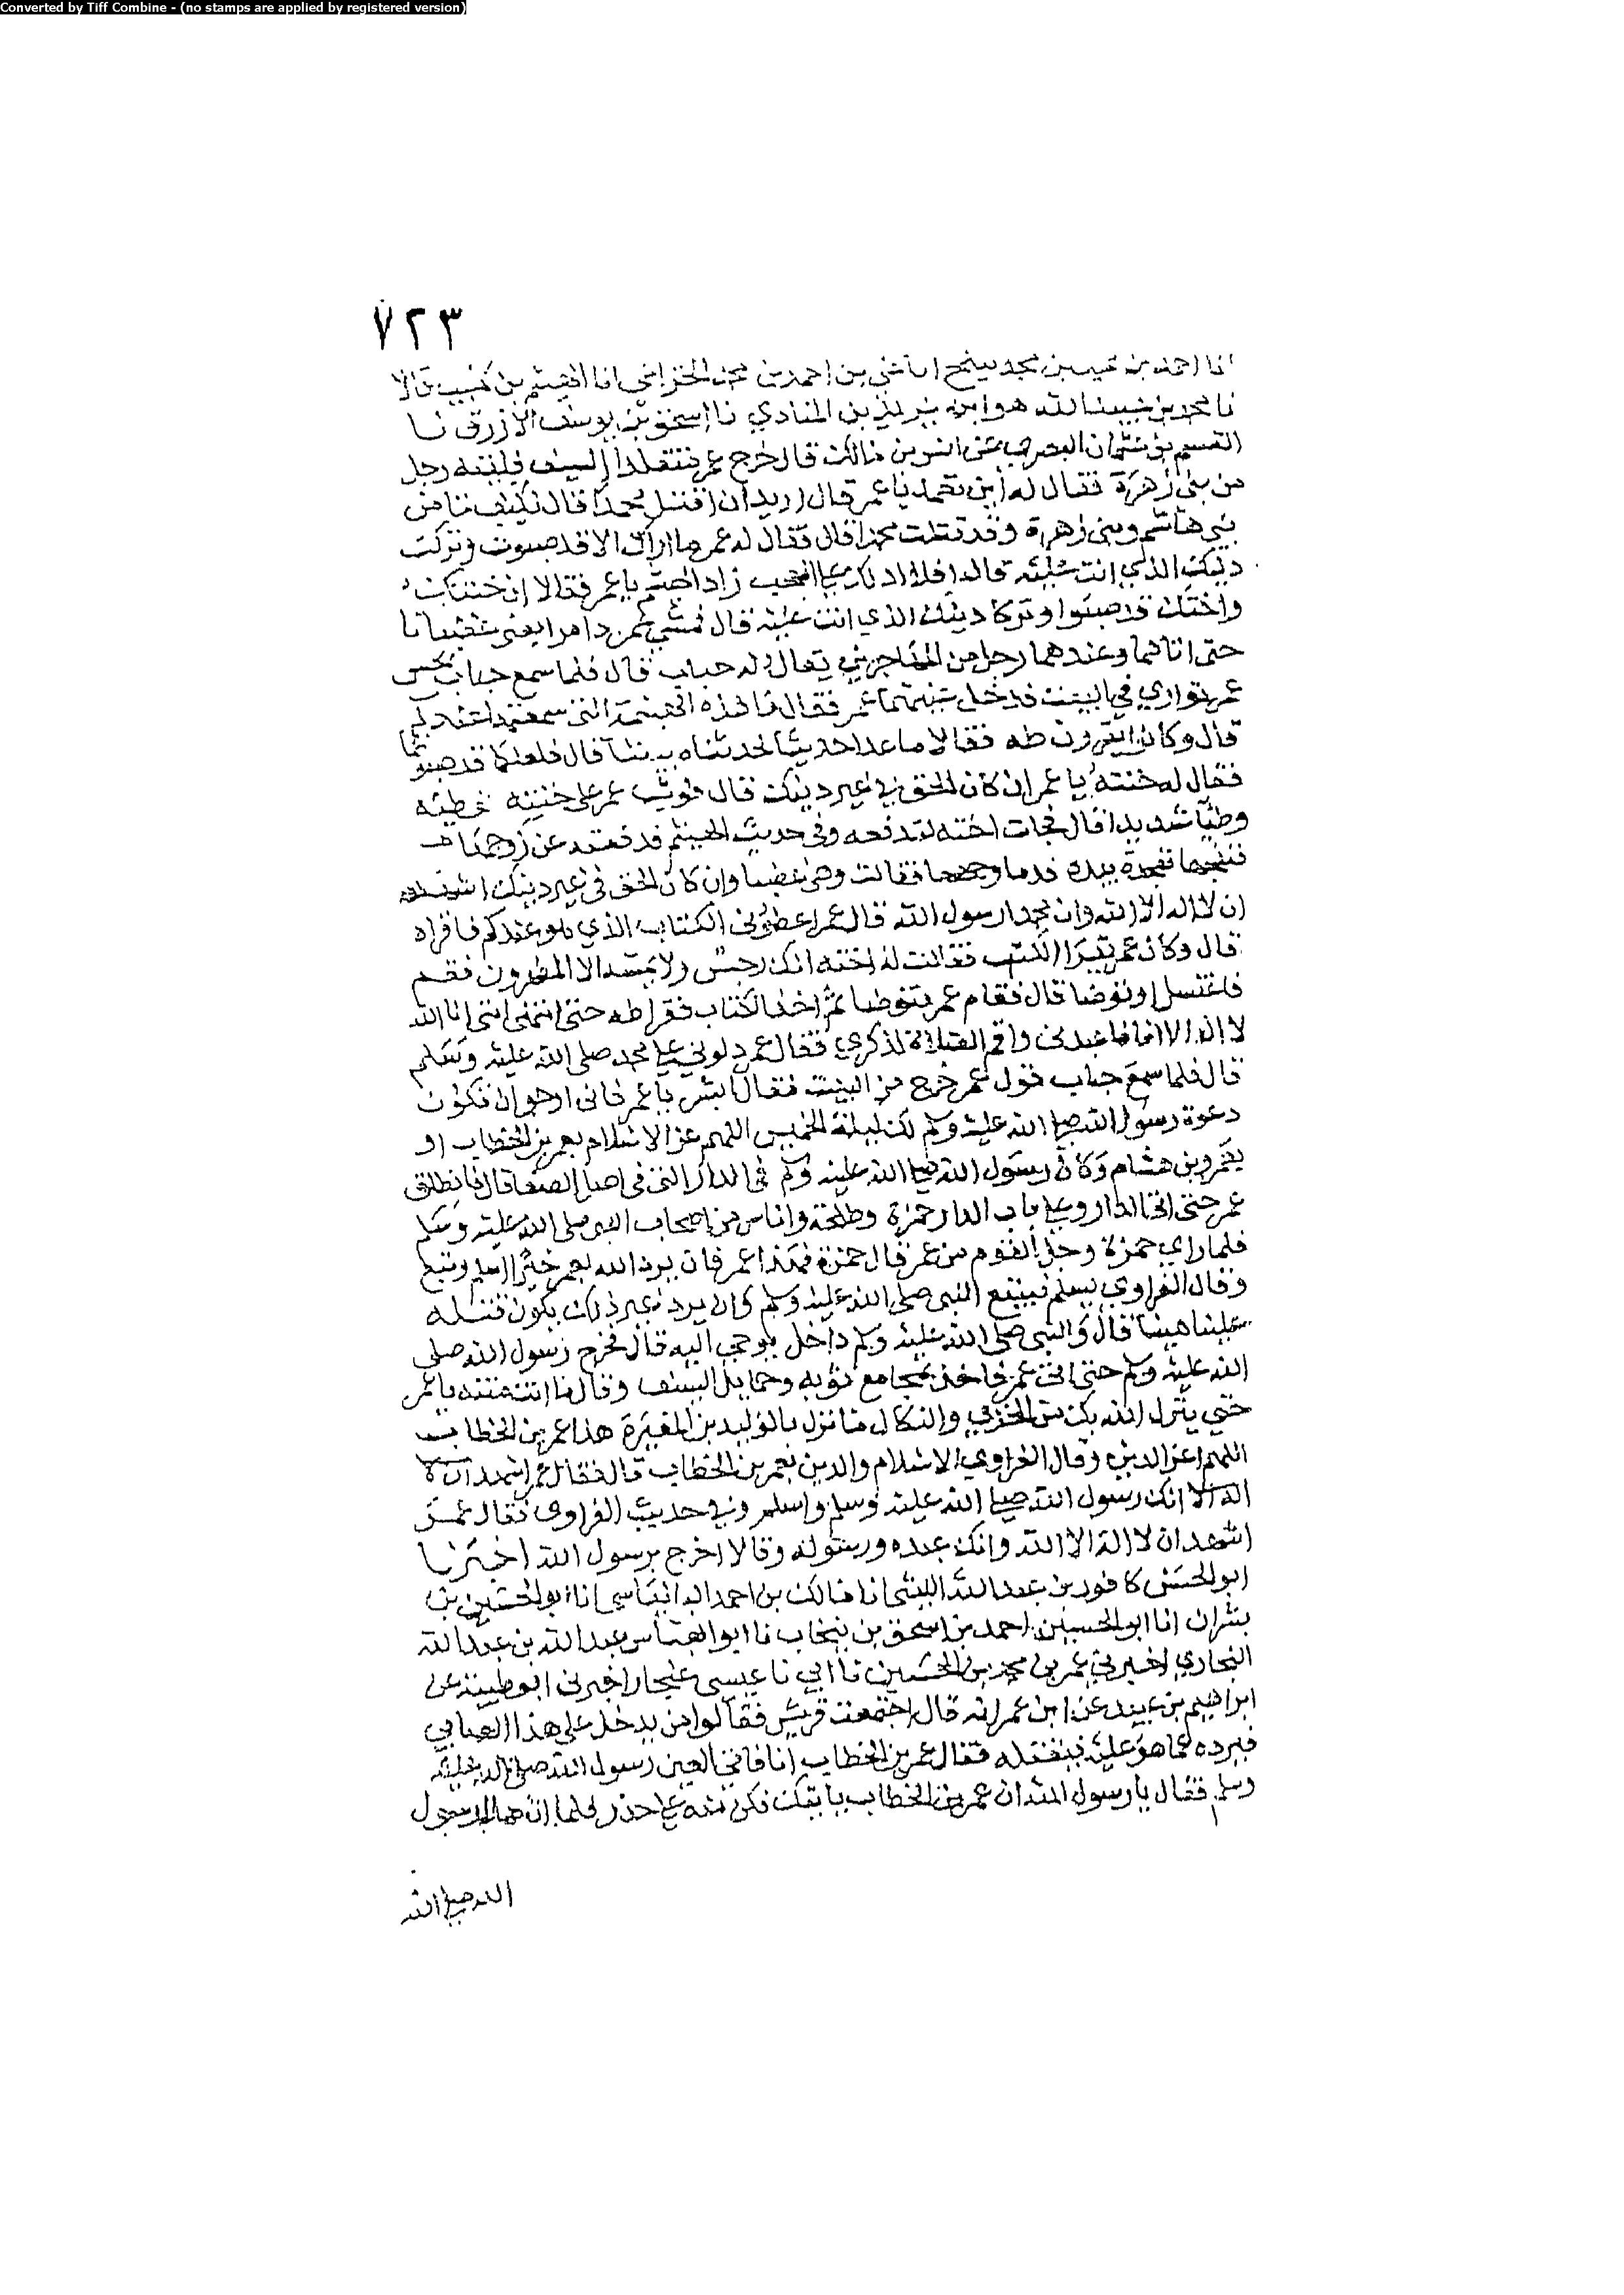 Converted by Tiff Combine - (no stamps are applied by registered version)
٧٢٣
انا احمد بن محمد بن احمد بن محمد الخزاعي انا الهيثم بن كليب قالا
نا محمد بن عبيد الله هو ابن يزيد بن المنادي نا اسحق بن يوسف الازرق نا
القسم بن عثمان البصري عن انس بن مالك قال خرج عمر متقلدا السيف فلقيه رجل
من بني زهرة فقال له اين تعمد يا عمر قال اريد ان اقتل محمدا قال فكيف تامن
بني هاشم وبني زهرة وقد قتلت محمدا قال فقال له عمر ما اراك الا قد صبوت وتركت
دينك الذي انت عليه قال افلا ادلك على العجب زاد الهيثم يا عمر فقالا ان ختنك
واختك قد صبوا وتركا دينك الذي انت عليه قال فمشى عمر ذامرا يعني غضبانا
حتى اتاهما وعندهما رجل من المهاجرين يقال له خباب قال فلما سمع خباب بحس
عمر توارى في البيت فدخل عليهما عمر فقال ما هذه الهينمة التي سمعتها عندكم
قال وكانوا يقرون طه فقالا ما عدا حديثا تحدثناه بيننا قال فلعلكما قد صبوتما
فقال له ختنه يا عمر ان كان الحق في غير دينك قال فوثب عمر على ختنه فوطئه
وطئا شديدا قال فجات اخته لتدفعه وفي حديث الهيثم فدفعته عن زوجها
فنفحها نفحة بيده فدما وجهها فقالت وهي غضبا وان كان الحق في غير دينك اشهد
ان لا اله الا الله وان محمدا رسول الله قال عمر اعطوني الكتاب الذي هو عندكم فاقراه
قال وكان عمر يقرا الكتب فقالت له اخته انك رجس ولا يمسه الا المطهرون فقم
فاغتسل او توضا قال فقام عمر فتوضا ثم اخذ الكتاب فقرا طه حتى انتهى انني انا الله
لا اله الا انا فاعبدني واقم الصلاة لذكري فقال عمر دلوني على محمد صلى الله عليه وسلم
قال فلما سمع خباب قول عمر خرج من البيت فقال ابشر يا عمر فاني ارجو ان تكون
دعوة رسول الله صلى الله عليه وسلم لك ليلة الخميس اللهم عز الاسلام بعمر بن الخطاب او
بعمرو بن هشام وكان رسول الله صلى الله عليه وسلم في الدار التي في اصل الصفا قال فانطلق
عمر حتى اتى الدار وعلى باب الدار حمزة وطلحة واناس من اصحاب النبي صلى الله عليه وسلم
فلما راي حمزة وجل القوم من عمر قال حمزة فهذا عمر فان يرد الله بعمر خيرا يسلم ويتبع
وقال الفراوي يسلم فيتبع النبي صلى الله عليه وسلم وان يرد غير ذلك يكون قتله
علينا هينا قال والنبي صلى الله عليه وسلم داخل يوحى اليه قال فخرج رسول الله صلى
الله عليه وسلم حتى اتى عمر فاخذ بمجامع ثوبه وحمايل السيف وقال ما انت منته يا عمر
حتى ينزل الله بك من الخزي والنكال ما نزل بالوليد بن المغيرة هذا عمر بن الخطاب
اللهم اعز الدين وقال الفراوي الاسلام والدين بعمر بن الخطاب قال فقال عمر اشهد ان لا
اله الا انك رسول الله صلى الله عليه وسلم واسلم وفي حديث الفراوي فقال عمر
اشهد ان لا اله الا الله وانك عبده ورسوله وقالا اخرج يرسول الله اخبرنا
ابو الحسن كافور بن عبد الله الليثي انا مالك بن احمد البانياسي انا ابو الحسين بن
بشران انا ابو الحسين احمد بن اسحق بن نيخاب نا ابو العباس عبد الله بن عبد الله
البخاري اخبرني عمر بن محمد بن الحسين نا ابي نا عيسى اخبرني ابو طيبة عن
ابراهيم بن عبيد عن ابن عمر انه قال اجتمعت قريش فقالوا من يدخل على هذا الصابي
فيرده عما هو عليه فيقتله فقال عمر بن الخطاب انا فاتى العين رسول الله صلى الله عليه
وسلم فقال يا رسول الله ان عمر بن الخطاب ياتيك فكن منه على حذر فلما ان صلى رسول
الله صلى الله